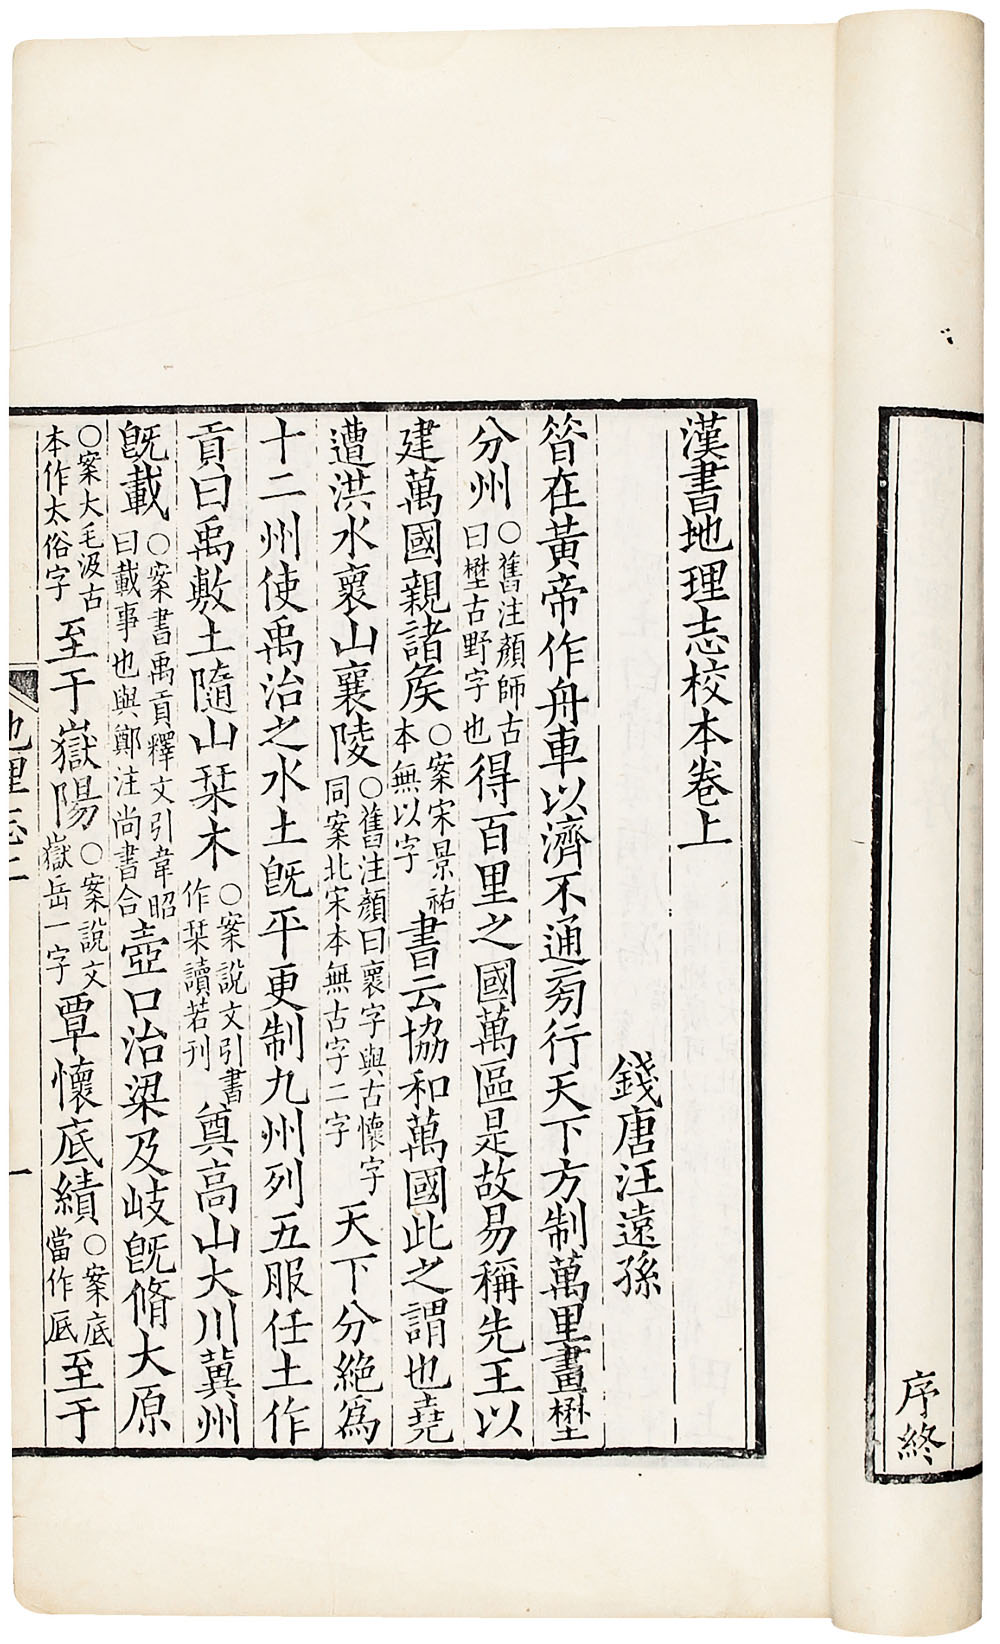 序終
漢書地理志校本卷上
錢唐汪遠孫
昝在黃帝作舟車以濟不通㫄行天下方制萬里畫壄
分州○舊注顏師古曰壄古野字也得百里之國萬區是故易稱先王以
建萬國親諸矦○案宋景祐本無以字書云協和萬國此之謂也堯
遭洪水褱山襄陵○舊注顏曰褱字與古懷字同案北宋本無古字二字天下分絶爲
十二州使禹治之水土旣平更制九州列五服任土作
貢曰禹敷土隨山栞木○案說文引書作栞讀若刊奠高山大川冀州
旣載○案書禹貢釋文引韋昭曰載事也與鄭注尚書合壺口治梁及岐旣脩大原
○案大毛汲古本作太俗字至于嶽陽○案說文嶽岳一字覃懷底績○案底當作厎至于
地理志上
一